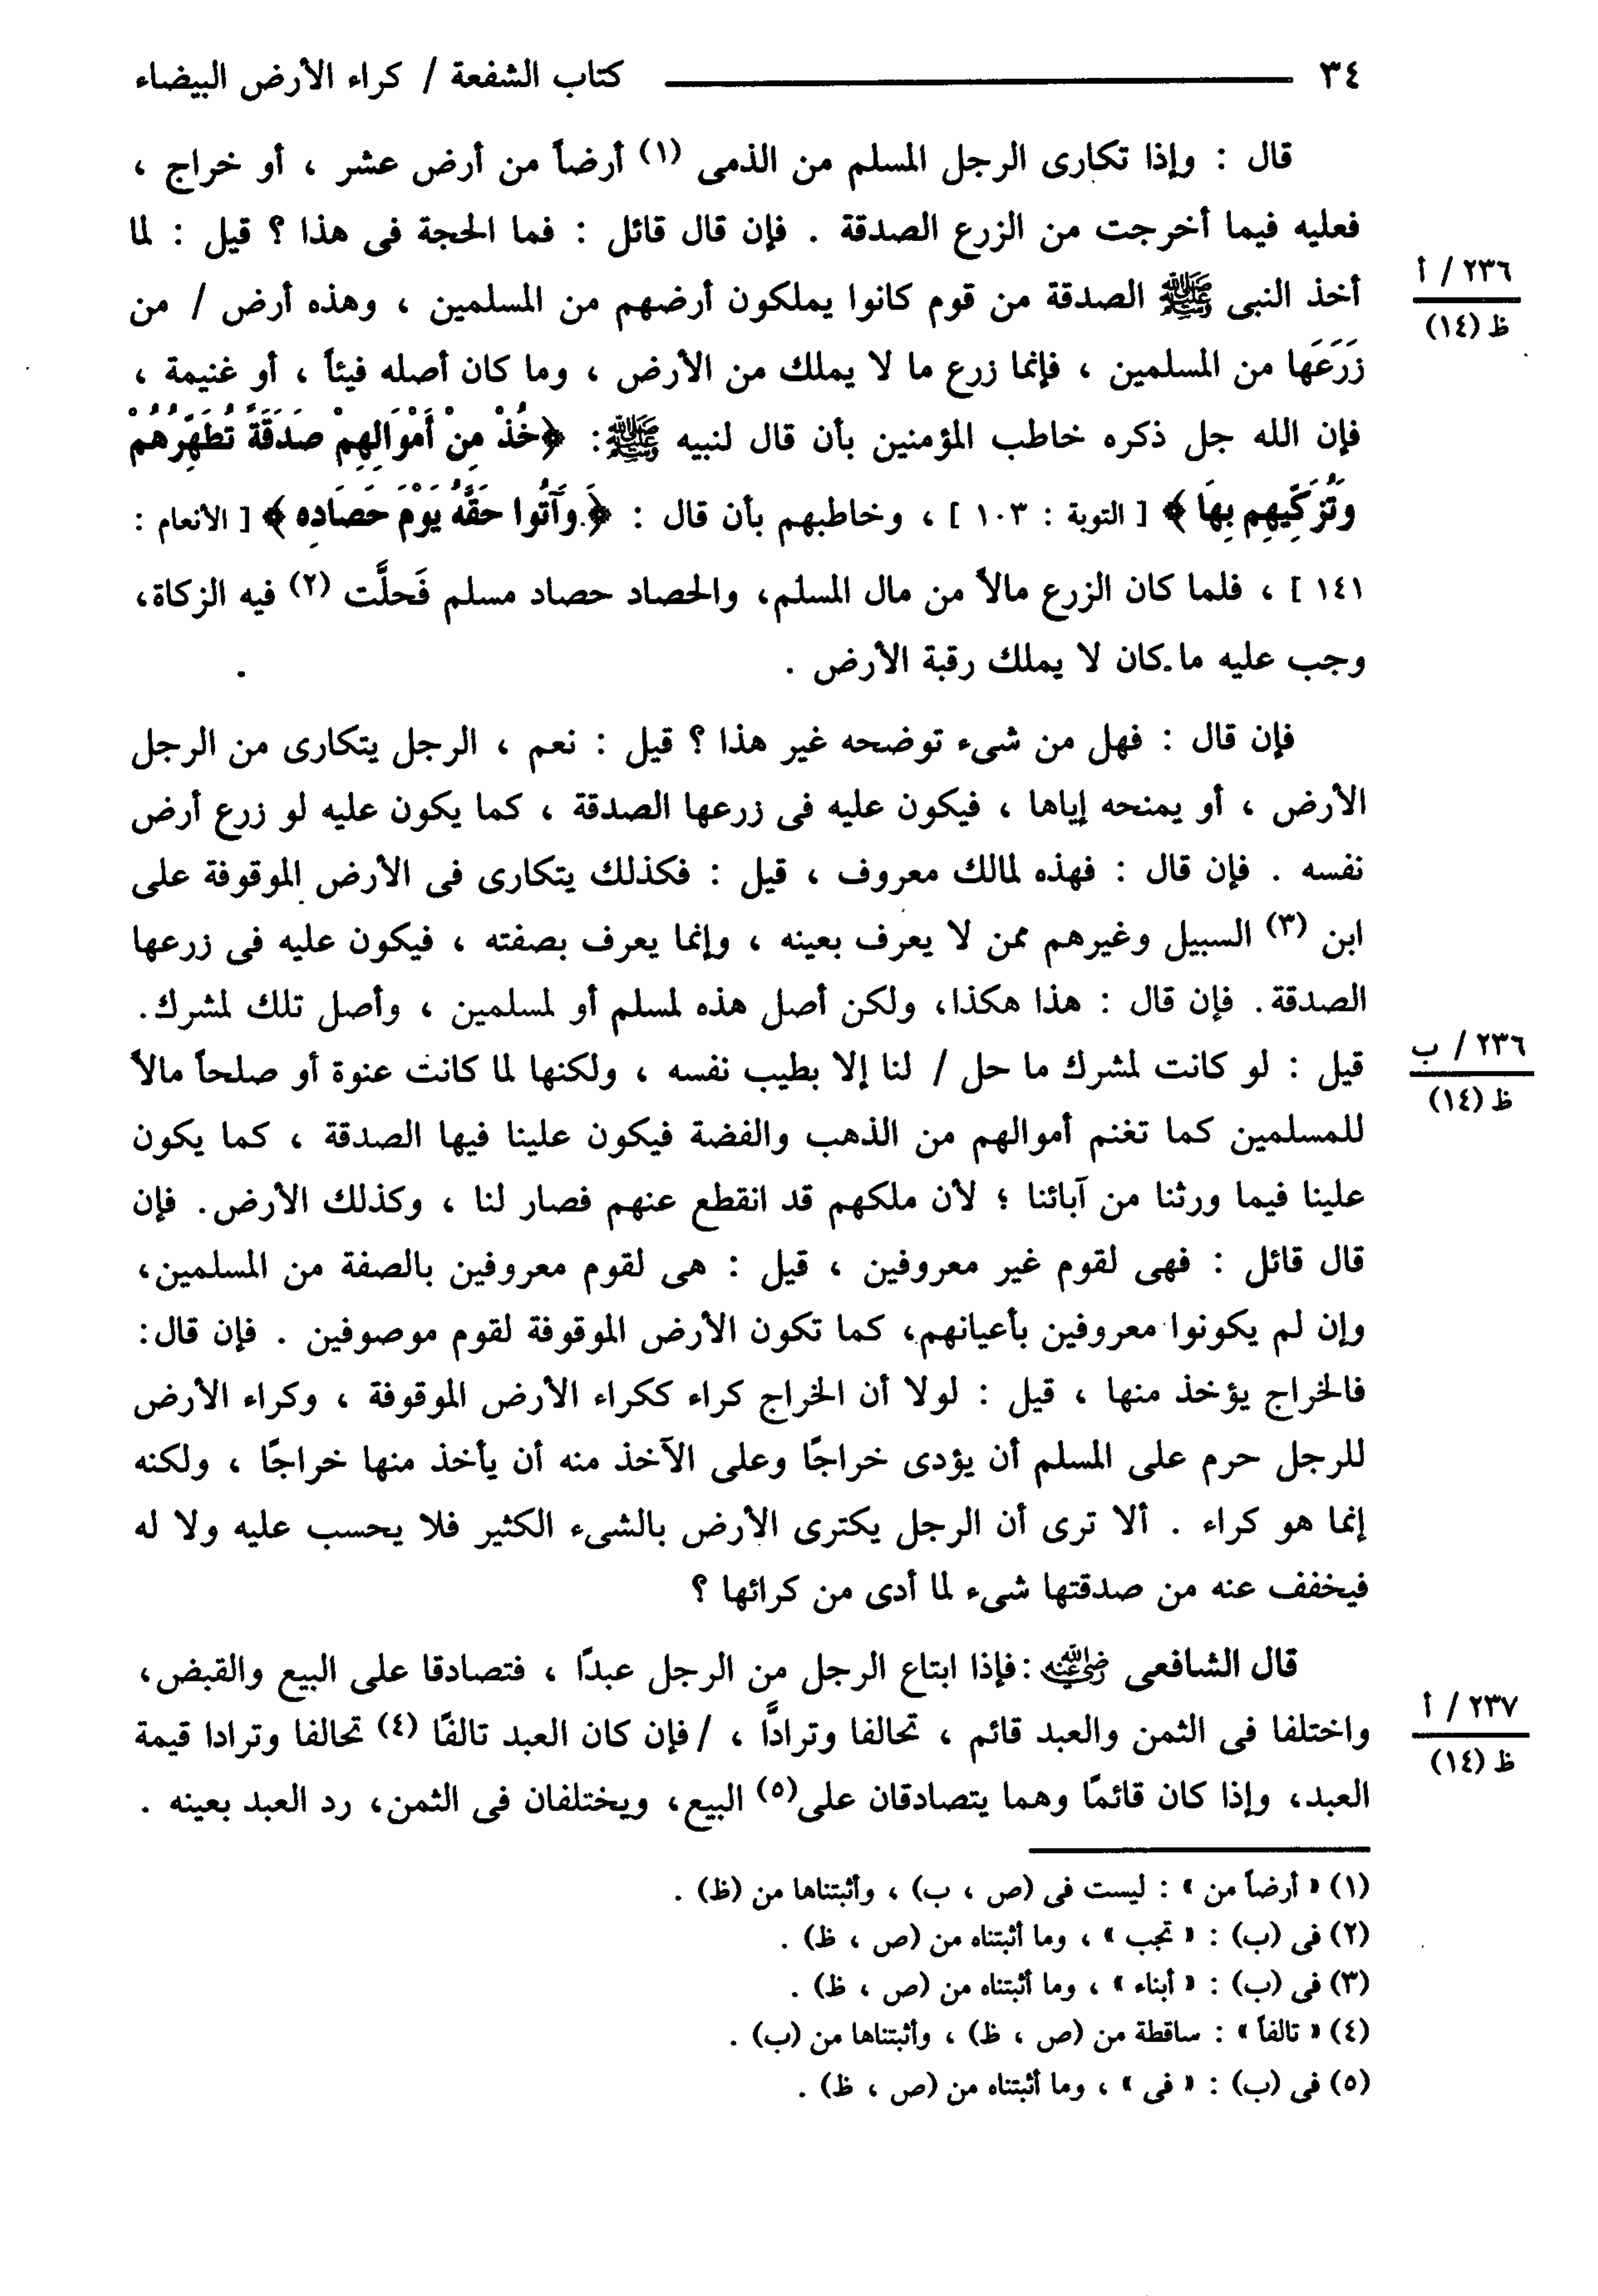 ٣٤ كتاب الشفعة / كراء الأرض البيضاء
قال : وإذا تكارى الرجل المسلم من الذمى (١) أرضاً من أرض عشر ، أو خراج ،
فعليه فيما أخرجت من الزرع الصدقة . فإن قال قائل : فما الحجة فى هذا ؟ قيل : لما
أخذ النبى ﷺ الصدقة من قوم كانوا يملكون أرضهم من المسلمين ، وهذه أرض / من
٢٣٦ / أ
ظ (١٤)
زَرَعَها من المسلمين ، فإنما زرع ما لا يملك من الأرض ، وما كان أصله فيئاً ، أو غنيمة ،
فإن الله جل ذكره خاطب المؤمنين بأن قال لنبيه ﷺ: ﴿خُذْ مِنْ أَمْوَالِهِمْ صَدَقَةً تُطَهِّرُهُمْ
وَتُزَكِّيهِم بِهَا ﴾ [ التوبة : ١٠٣ ] ، وخاطبهم بأن قال : ﴿ وَآتُوا حَقَّهُ يَوْمَ حَصَادِهِ ﴾ [ الأنعام :
١٤١ ] ، فلما كان الزرع مالاً من مال المسلم، والحصاد حصاد مسلم فَحلَّت (٢) فيه الزكاة،
وجب عليه ما كان لا يملك رقبة الأرض .
فإن قال : فهل من شىء توضحه غير هذا ؟ قيل : نعم ، الرجل يتكارى من الرجل
الأرض ، أو يمنحه إياها ، فيكون عليه فى زرعها الصدقة ، كما يكون عليه لو زرع أرض
نفسه . فإن قال : فهذه لمالك معروف ، قيل : فكذلك يتكارى فى الأرض الموقوفة على
ابن (٣) السبيل وغيرهم ممن لا يعرف بعينه ، وإنما يعرف بصفته ، فيكون عليه فى زرعها
الصدقة. فإن قال : هذا هكذا، ولكن أصل هذه لمسلم أو لمسلمين ، وأصل تلك لمشرك.
قيل : لو كانت لمشرك ما حل / لنا إلا بطيب نفسه ، ولكنها لما كانت عنوة أو صلحاً مالاً
٢٣٦ / ب
ظ (١٤)
للمسلمين كما تغنم أموالهم من الذهب والفضة فيكون علينا فيها الصدقة ، كما يكون
علينا فيما ورثنا من آبائنا ؛ لأن ملكهم قد انقطع عنهم فصار لنا ، وكذلك الأرض. فإن
قال قائل : فهى لقوم غير معروفين ، قيل : هى لقوم معروفين بالصفة من المسلمين،
وإن لم يكونوا معروفين بأعيانهم، كما تكون الأرض الموقوفة لقوم موصوفين . فإن قال:
فالخراج يؤخذ منها ، قيل : لولا أن الخراج كراء ككراء الأرض الموقوفة ، وكراء الأرض
للرجل حرم على المسلم أن يؤدى خراجًا وعلى الآخذ منه أن يأخذ منها خراجًا ، ولكنه
إنما هو كراء . ألا ترى أن الرجل يكترى الأرض بالشىء الكثير فلا يحسب عليه ولا له
فيخفف عنه من صدقتها شىء لما أدى من كرائها ؟
قال الشافعى رضي الله عنه : فإذا ابتاع الرجل من الرجل عبدًا ، فتصادقا على البيع والقبض،
واختلفا فى الثمن والعبد قائم ، تحالفا وترادَّا ، / فإن كان العبد تالفًا (٤) تحالفا وترادا قيمة
٢٣٧ / أ
ظ (١٤)
العبد، وإذا كان قائمًا وهما يتصادقان على(٥) البيع، ويختلفان فى الثمن، رد العبد بعينه .
(١) « أرضاً من » : ليست فى (ص ، ب) ، وأثبتناها من (ظ) .
(٢) فى (ب) : « تجب » ، وما أثبتناه من (ص ، ظ) .
(٣) فى (ب) : « أبناء » ، وما أثبتناه من (ص ، ظ) .
(٤) « تالفاً » : ساقطة من (ص ، ظ) ، وأثبتناها من (ب) .
(٥) فى (ب) : « فى » ، وما أثبتناه من (ص ، ظ) .